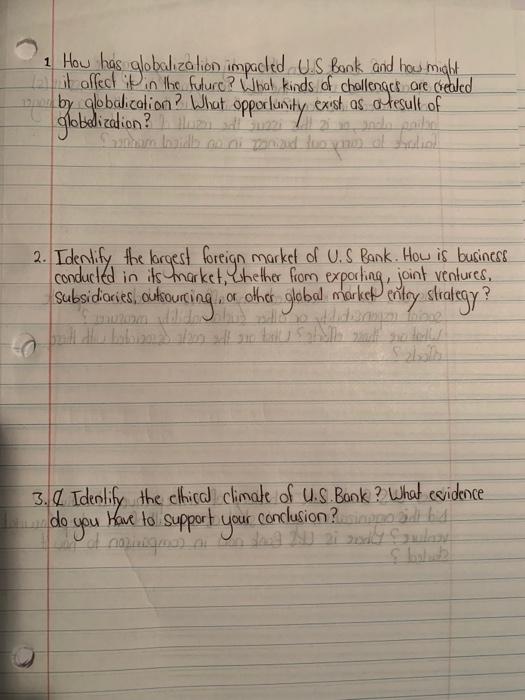 1 How has globalization impacted U.S Bank and how might
it affect it in the future? What kinds of challenges are created
by globalization? What opportunity exist as a result of
globalization?
2. Identify the largest foreign market of U.S Bank. How is business
conducted in its market, whether from exporting, joint ventures,
subsidiaries, outsourcing, or other global market entry strategy?
3. Identify the ethical climate of U.S. Bank? What evidence
do you have to support your conclusion?